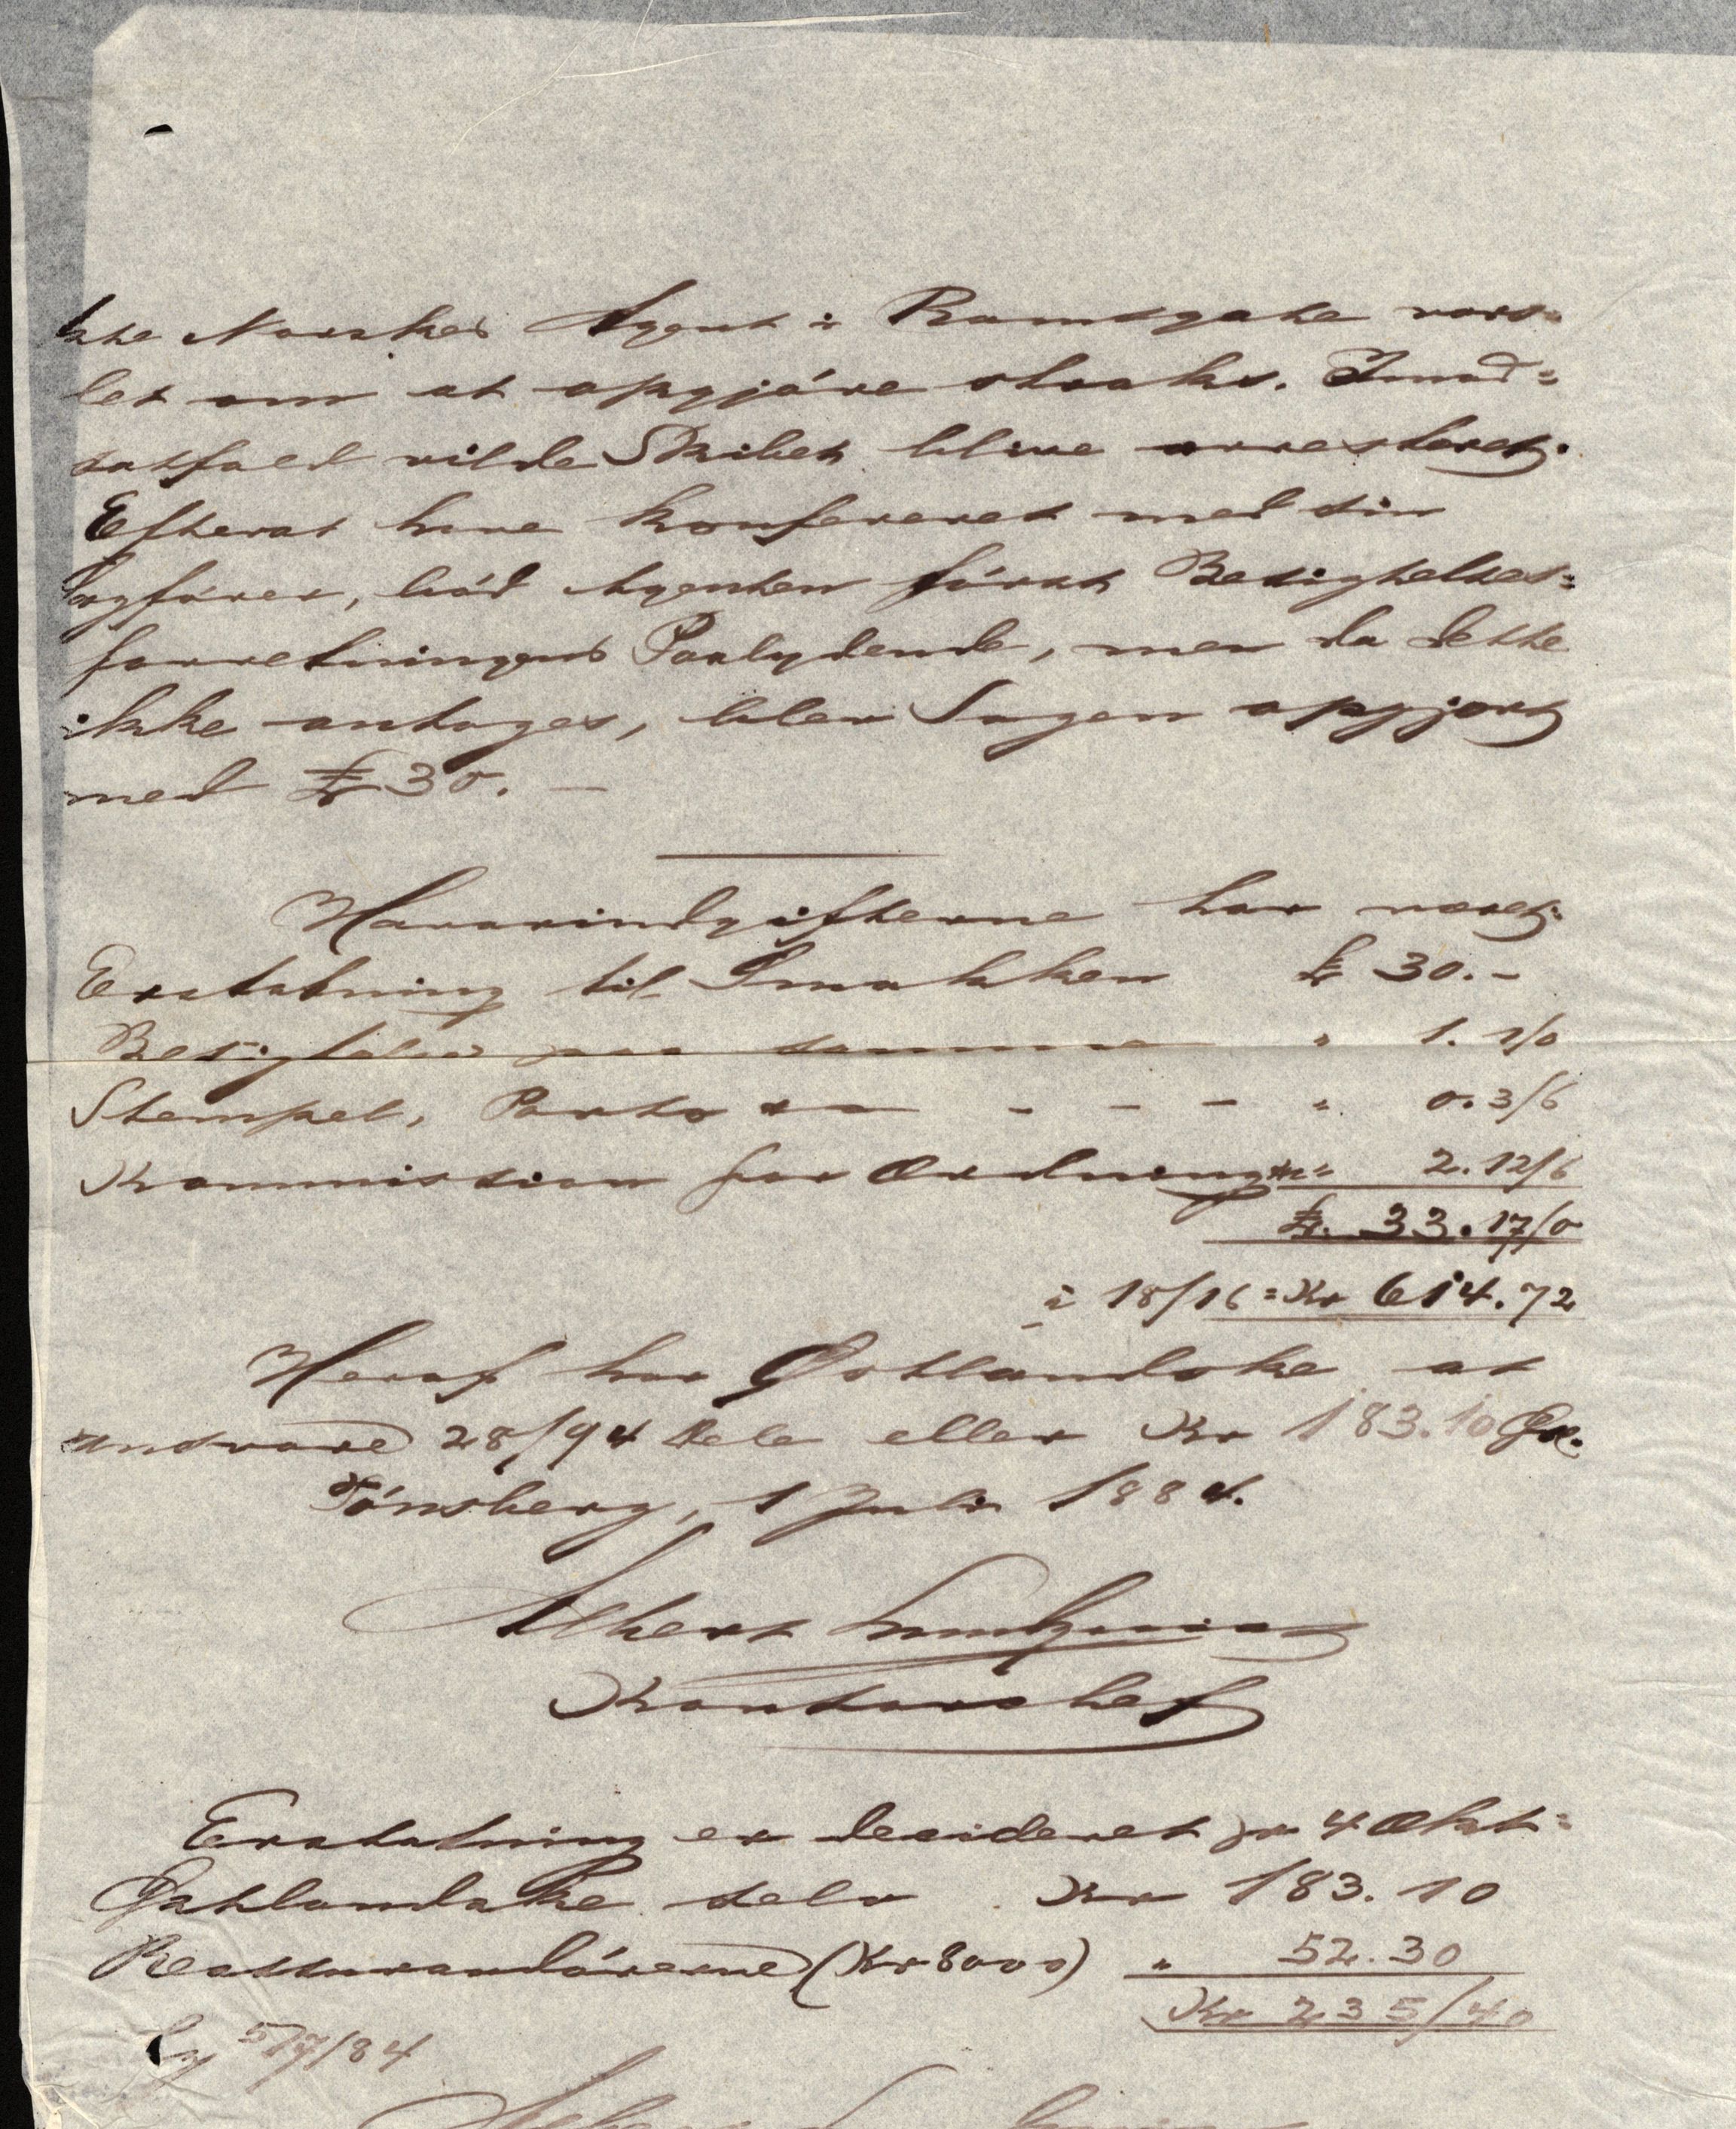 kke Norskes Agent i Ramsgate vars=
let om at opgjöre straks. Imod=
satfald vilde Skibet blive arresteret.
Efterat have konfereret med sin
Sagförer, böd Agenten först Besigtelses=
forretningens Paalydende, men da dette
ikke antages, blev Sagen opgjort
med £ 30. —
Havariudgifterne har været:
Erstatning til Smakken £ 30. -
Besigtelse paa samme " 1. 1/0
Stempel, Porto - - - " 0. 3/6
Kommission for Ordning " 2. 12/6
£. 33. 17/0
à 18/16 = Kr 614.72
Heraf har Gotlandske at
undvare 28/94 Dele eller Kr 183.10 Öre.
Tönsberg, 1 Juli 1884.
Albert
Kontorchef
Erstatning er decideret pr 4 Okt=
Gotlandske selv Kr 183.10
Reassurandörerne (Kr 8000) " 52.30
Kr 235/40
5/7/84